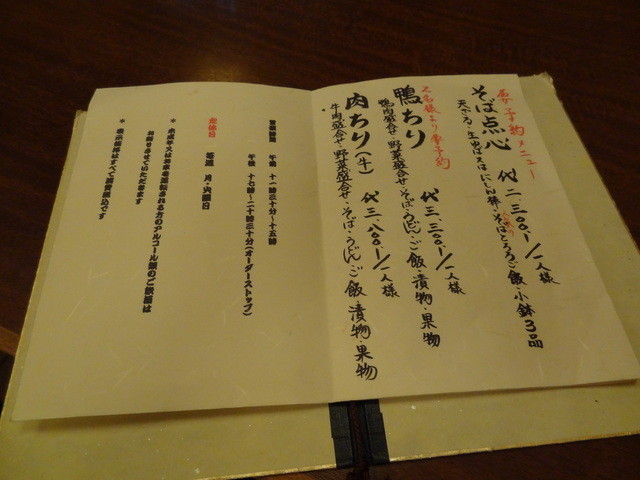 要予約メニュー
そば点心 代 二、三〇〇、/一人様
天ざる・生
にしん棒・そばとろろご飯・小鉢3品
2名様より要予約
鴨ちり 代 三、三〇〇、/一人様
鴨肉盛合せ・野菜盛合せ・そば・うどん・ご飯・漬物・果物
肉ちり(牛) 代 三、八〇〇、/一人様
牛肉盛合せ・野菜盛合せ・そば・うどん・ご飯・漬物・果物
営業時間 午前 十一時三十分〜十五時
午後 十七時〜二十時三十分(オーダーストップ)
定休日 毎週 月・火曜日
* 未成年又はお車を運転される方のアルコール類のご飲酒は
お断りさせていただきます
* 表示価格はすべて消費税込です